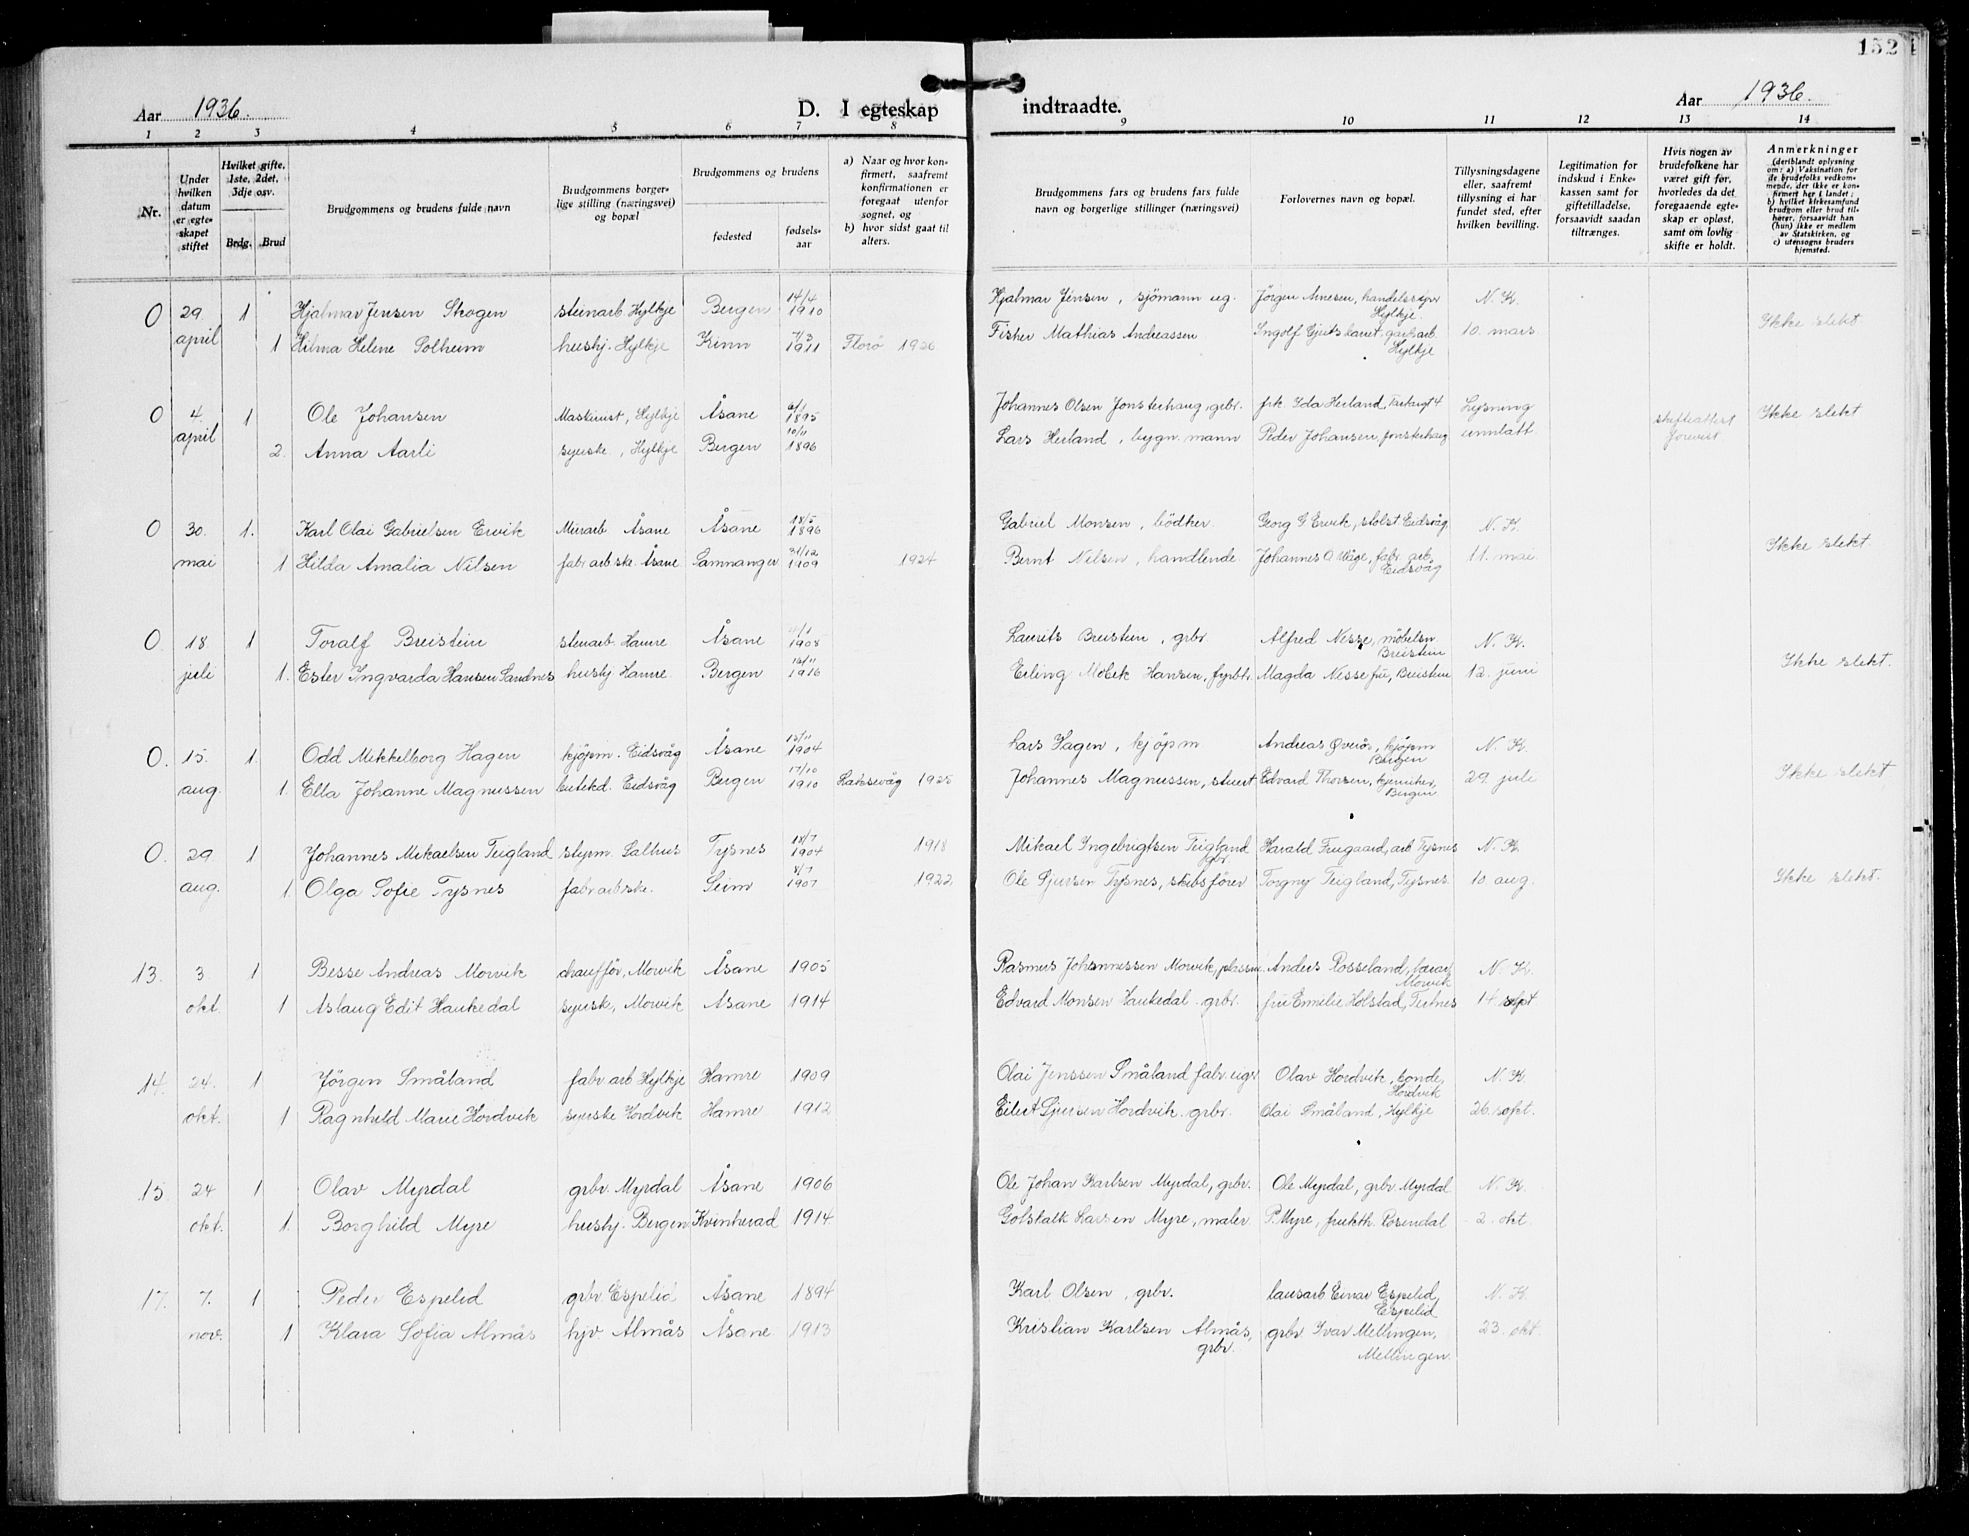 152
Aar 1936. D. I egteskap indtraadte. Aar 1936.
1 2 3 4 5 6 7 8 9 10 11 12 13 14
Nr.
Under hvilken datum er egteskapet stiftet
Hvilket gifte, 1ste, 2det, 3dje osv.
Brdg. Brud
Brudgommens og brudens fulde navn
Brudgommens borgerlige stilling (næringsvei) og bopæl
Brudgommens og brudens
fødested fødselsaar
a) Naar og hvor konfirmert, saafremt konfirmationen er foregaat utenfor sognet, og
b) hvor sidst gaat til alters.
Brudgommens fars og brudens fars fulde navn og borgerlige stillinger (næringsvei)
Forlovernes navn og bopæl.
Tillysningsdagene eller, saafremt tillysning ei har fundet sted, efter hvilken bevilling.
Legitimation for indskud i Enkekassen samt for giftetilladelse, forsaavidt saadan tiltrænges.
Hvis nogen av brudefolkene har været gift før, hvorledes da det foregaaende egteskap er opløst, samt om lovlig skifte er holdt.
Anmerkninger (deriblandt oplysning om: a) Vaksination for de brudefolks vedkommende, der ikke er konfirmert her i landet; b) hvilket kirkesamfund brudgom eller brud tilhører, forsaavidt han (hun) ikke er medlem av Statskirken, og c) utensogns bruders hjemsted.
0 29 1 Hjalmar Jensen Skogen steinarb. Hylkje Bergen 14/4 1910 Hjalmar Jensen, sjömann Jörgen Arnesen, Hylkje N. K.
april 1 Hilma Helene Solheim hushj. Hylkje Kinn 7/3 1911 Florö 1926 Fisker Mathias Andreassen Ingolf Hylkje 10. mars Ikke slekt
0 4 1 Ole Johansen Maskinist, Hylkje Åsane 1895 Johannes Olsen Jonsterhaug, grbr. frk. Yda Herland, Lysning Ikke slekt
april 2. Anna Aarli syerske, Hylkje Bergen 10/11 1896 Lars Herland, bygn. mann Peder Johansen, Jonsterhaug unnlatt. skifteattest forevist.
0 30. 1. Karl Olai Gabrielsen Ervik Murarb Åsane Åsane 18/5 1896 Gabriel Monsen, bödker Georg G Ervik, Eidsvåg N. K.
mai 1 Hilda Amalia Nilsen fabrarbske. Åsane Samnanger 31/12 1909 1924 Bernt Nilsen, handlende Johannes O. Våge, fabr. arb Eidsvåg 11. mai Ikke slekt
0 18 1 Toralf Breistein steinarb. Hamre Åsane 1908 Laurits Breistein, grbr. Alfred Nesse, möbelsn. Breistein N. K.
juli 1. Ester Ingvarda Hansen Sandnes hushj Hamre Bergen 1916 Erling Hansen, fyrbt. Magda Nesse fru, Breistein 12. juni Ikke slekt.
0. 15. 1. Odd Mikkelborg Hagen kjöpm. Eidsvåg Åsane 1904 Lars Hagen, kjöpm Andreas Øverör, kjöpm Bergen N. K.
aug. 1. Ella Johanne Magnussen butekd. Eidsvåg Bergen 17/10 1910 Laksevåg 1925 Johannes Magnussen, stuert Edvard Thorsen, kjemiker, Bergen 29. juli Ikke slekt
0. 29. 1 Johannes Mikaelsen Teigland styrm. Salhus Tysnes 18/7 1904 1918 Mikael Ingebrigtsen Teigland gbr. Harald Frugaard, arb Tysnes N. K.
aug. 1 Olga Sofie Tysnes fabrarbske. Seim 8/7 1907 1922 Ole Sjursen Tysnes, skibsförer Torgny Teigland, Tysnes. 10 aug. Ikke slekt.
13. 3. 1 Besse Andreas Morvik chaufför, Morvik Åsane 1905 Rasmus Johannessen Morvik, Anders Rosseland, Morvik N. K.
okt. 1 Aslaug Edit Haukedal syerske, Morvik Åsane 1914 Edvard Monsen Haukedal. grbr. fru Emelie Holstad, Tertnes 14 sept
14. 24. 1 Jörgen Småland fabr. arb Hylkje Hamre 1909 Olai Jenssen Småland fabr. eier Olav Hordvik, bonde, Hordvik N. K.
okt. 1 Ragnhild Marie Hordvik syerske Hordvik Hamre 1912 Eilert Sjursen Hordvik. grbr. Olai Småland, Hylkje 26. sept.
15. 24 1 Olav Myrdal grbr. Myrdal Åsane 1906 Ole Johan Karlsen Myrdal, grbr. Ole Myrdal, grbr. Myrdal N. K.
okt. 1. Borghild Myre hushj. Bergen Kvinherad 1914 Golskalk Larsen Myre, maler P. Myre, frukth. Rosendal 2. okt
17. 7. 1 Peder Espelid grbr Espelid Åsane 1894 Karl Olsen, grbr. lausarb Einar Espelid, Espelid N. K.
nov. 1 Klara Sofia Almås hjv Almås Åsane 1913 Kristian Karlsen Almås, grbr. grbr Ivar Mellingen, Mellingen. 23. okt.